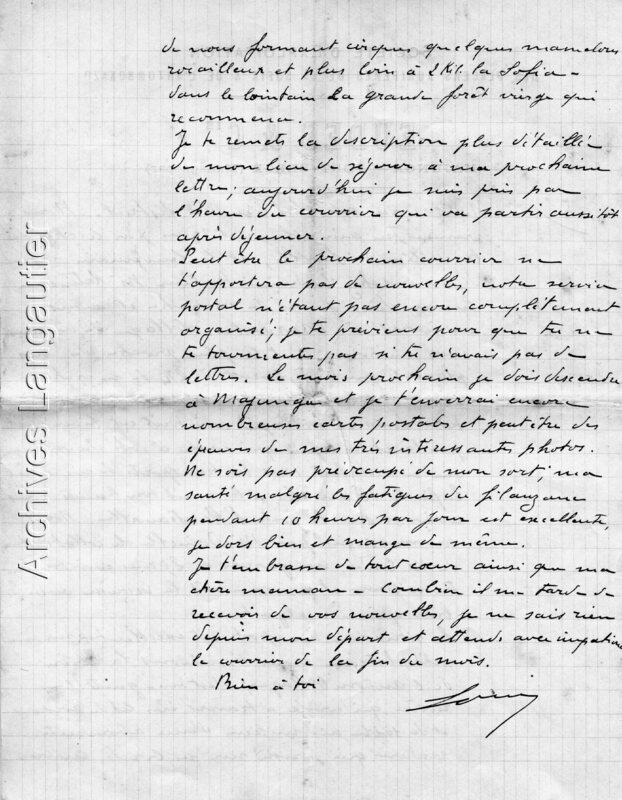 de nous formant cirque quelques mamelons
rocailleux et plus loin à 2 Kt. la Sofia -
dans le lointain la grande forêt vierge qui
recommence.
Je te remets la description plus détaillée
de mon lieu de séjour à ma prochaine
lettre ; aujourd'hui je suis pris par
l'heure du courrier qui va partir aussitôt
après déjeuner.
Peut être le prochain courrier ne
t'apportera pas de nouvelles, notre service
postal n'étant pas encore complètement
organisé ; je te préviens pour que tu ne
te tourmentes pas si tu n'avais pas de
lettres. Le mois prochain je dois descendre
à Majunga et je t'enverrai encore
nombreuses cartes postales et peut être des
épreuves de mes très intéressantes photos.
Ne sois pas préoccupé de mon sort ; ma
santé malgré les fatigues du filanzane
pendant 10 heures par jour est excellente,
je dors bien et mange de même.
Je t'embrasse de tout coeur ainsi que ma
chère maman - Combien il me tarde de
recevoir de vos nouvelles, je ne sais rien
depuis mon départ et attends avec impatience
le courrier de la fin du mois.
Bien à toi
Archives Langautier